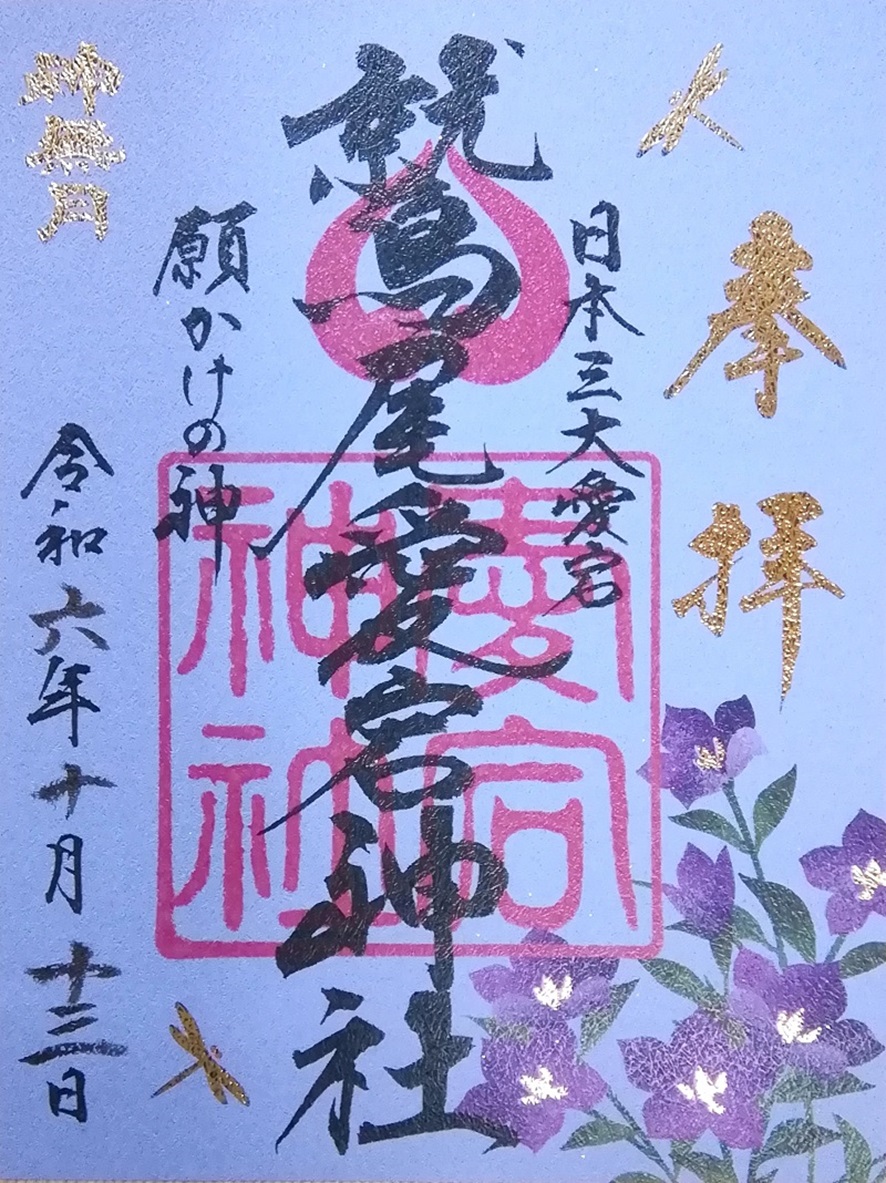 奉拝
日本三大愛宕
鷲尾愛宕神社
愛宕
神社
願かけの神
神無月
令和六年十月十三日